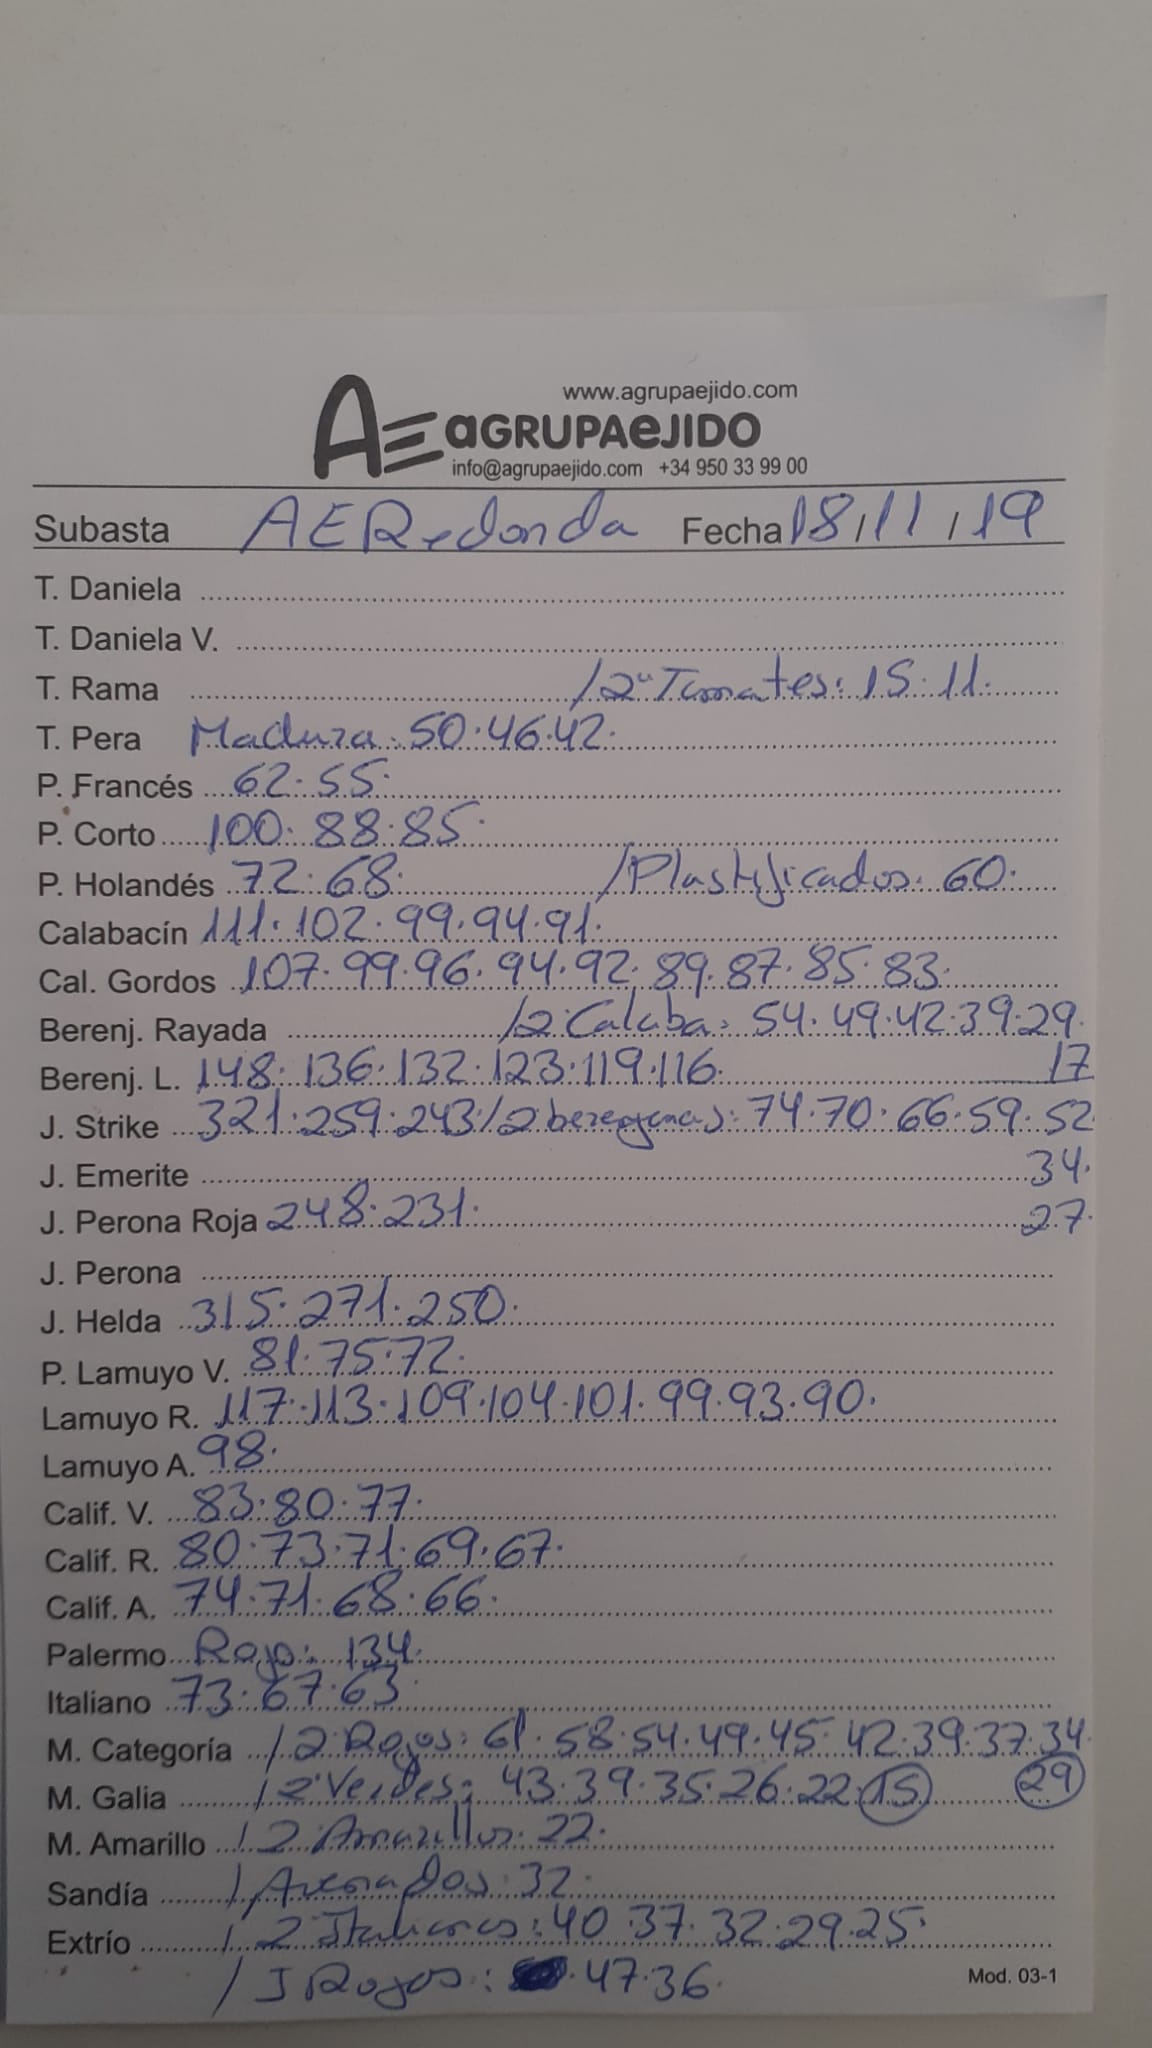 www.agrupaejido.com
AE aGRUPAeJIDO
info@agrupaejido.com +34 950 33 99 00
Subasta AERedonda Fecha 18/11/19
T. Daniela
T. Daniela V.
T. Rama /2ª Tomates: 15.11.
T. Pera Madura: 50.46.42.
P. Francés 62.55.
P. Corto 100.88.85.
P. Holandés 72.68. /Plastificados: 60.
Calabacín 111.102.99.94.91.
Cal. Gordos 107.99.96.94.92.89.87.85.83.
Berenj. Rayada /2ª Calaba: 54.49.42.39.29.
Berenj. L. 148.136.132.123.119.116. 17
J. Strike 321.259.243/2 berengenas: 74.70.66.59.52
J. Emerite 34.
J. Perona Roja 248.231. 27.
J. Perona
J. Helda 315.271.250.
P. Lamuyo V. 81.75.72.
Lamuyo R. 117.113.109.104.101.99.93.90.
Lamuyo A. 98.
Calif. V. 83.80.77.
Calif. R. 80.73.71.69.67.
Calif. A. 74.71.68.66.
Palermo Rojo: 134.
Italiano 73.67.63.
M. Categoría /2ª Rojos: 61.58.54.49.45.42.39.37.34.
M. Galia /2ª Verdes: 43.39.35.26.22.15 29
M. Amarillo /2ª Amarillos: 22.
Sandía /Asenados: 32.
Extrío /2ª Italianos: 40.37.32.29.25.
/J Rojos: 47.36.
Mod. 03-1